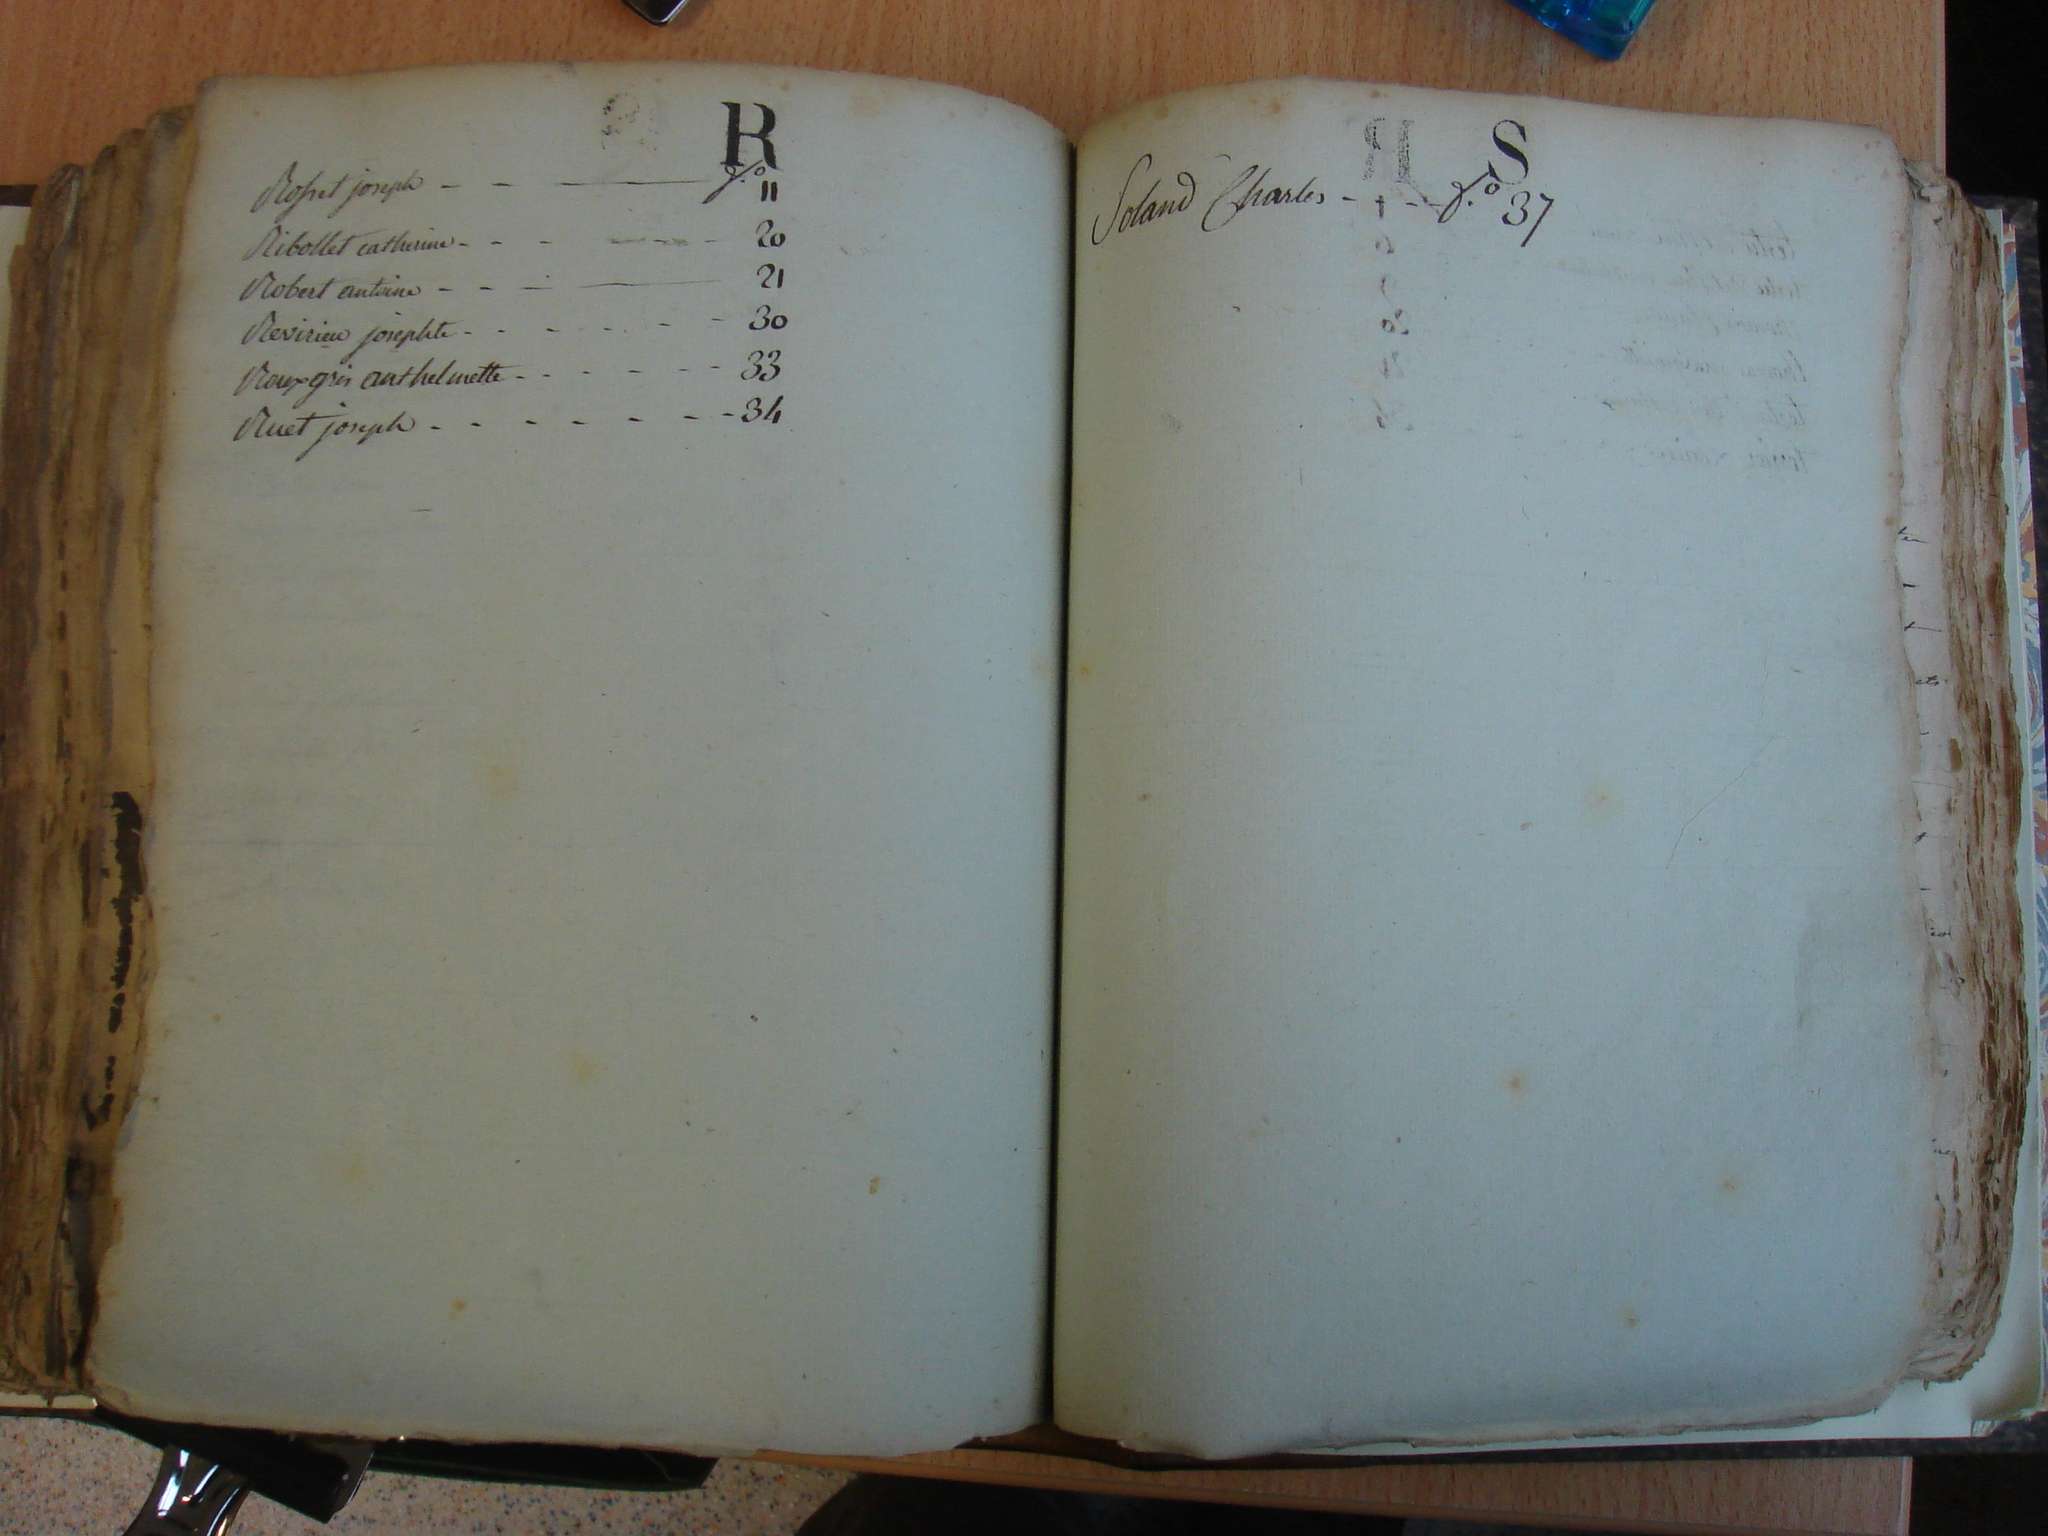 R
Rosset joseph - - f.º 11
Ribollet catherine - - - 20
Robert antoine - - - 21
Revirieu josephte - - - - - - 30
Roux gris anthelmette - - - - - - 33
Ruet joseph - - - - - - - 34
S
Soland Charles - - - f.º 37